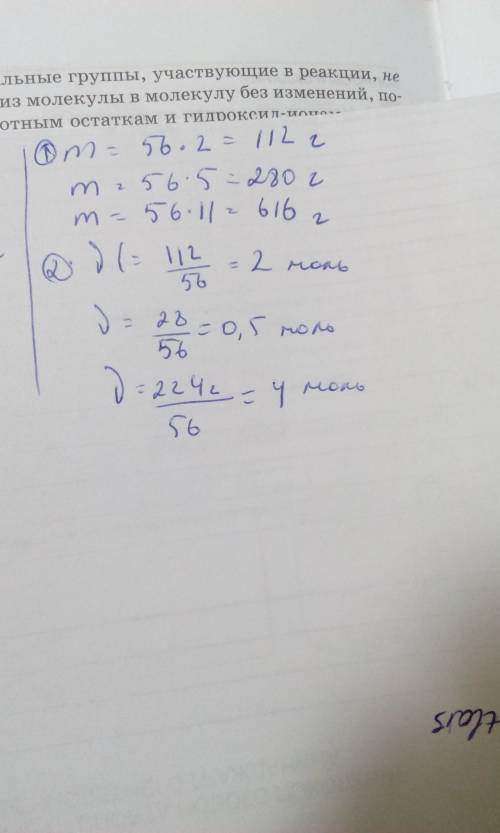 льные группы, участвующие в реакции, не
из молекулы в молекулу без изменений, по-
отным остаткам и гидроксил-ионам
① m = 56 · 2 = 112 г
m = 56 · 5 = 280 г
m = 56 · 11 = 616 г
② ν = 112/56 = 2 моль
ν = 28/56 = 0,5 моль
ν = 224г/56 = 4 моль